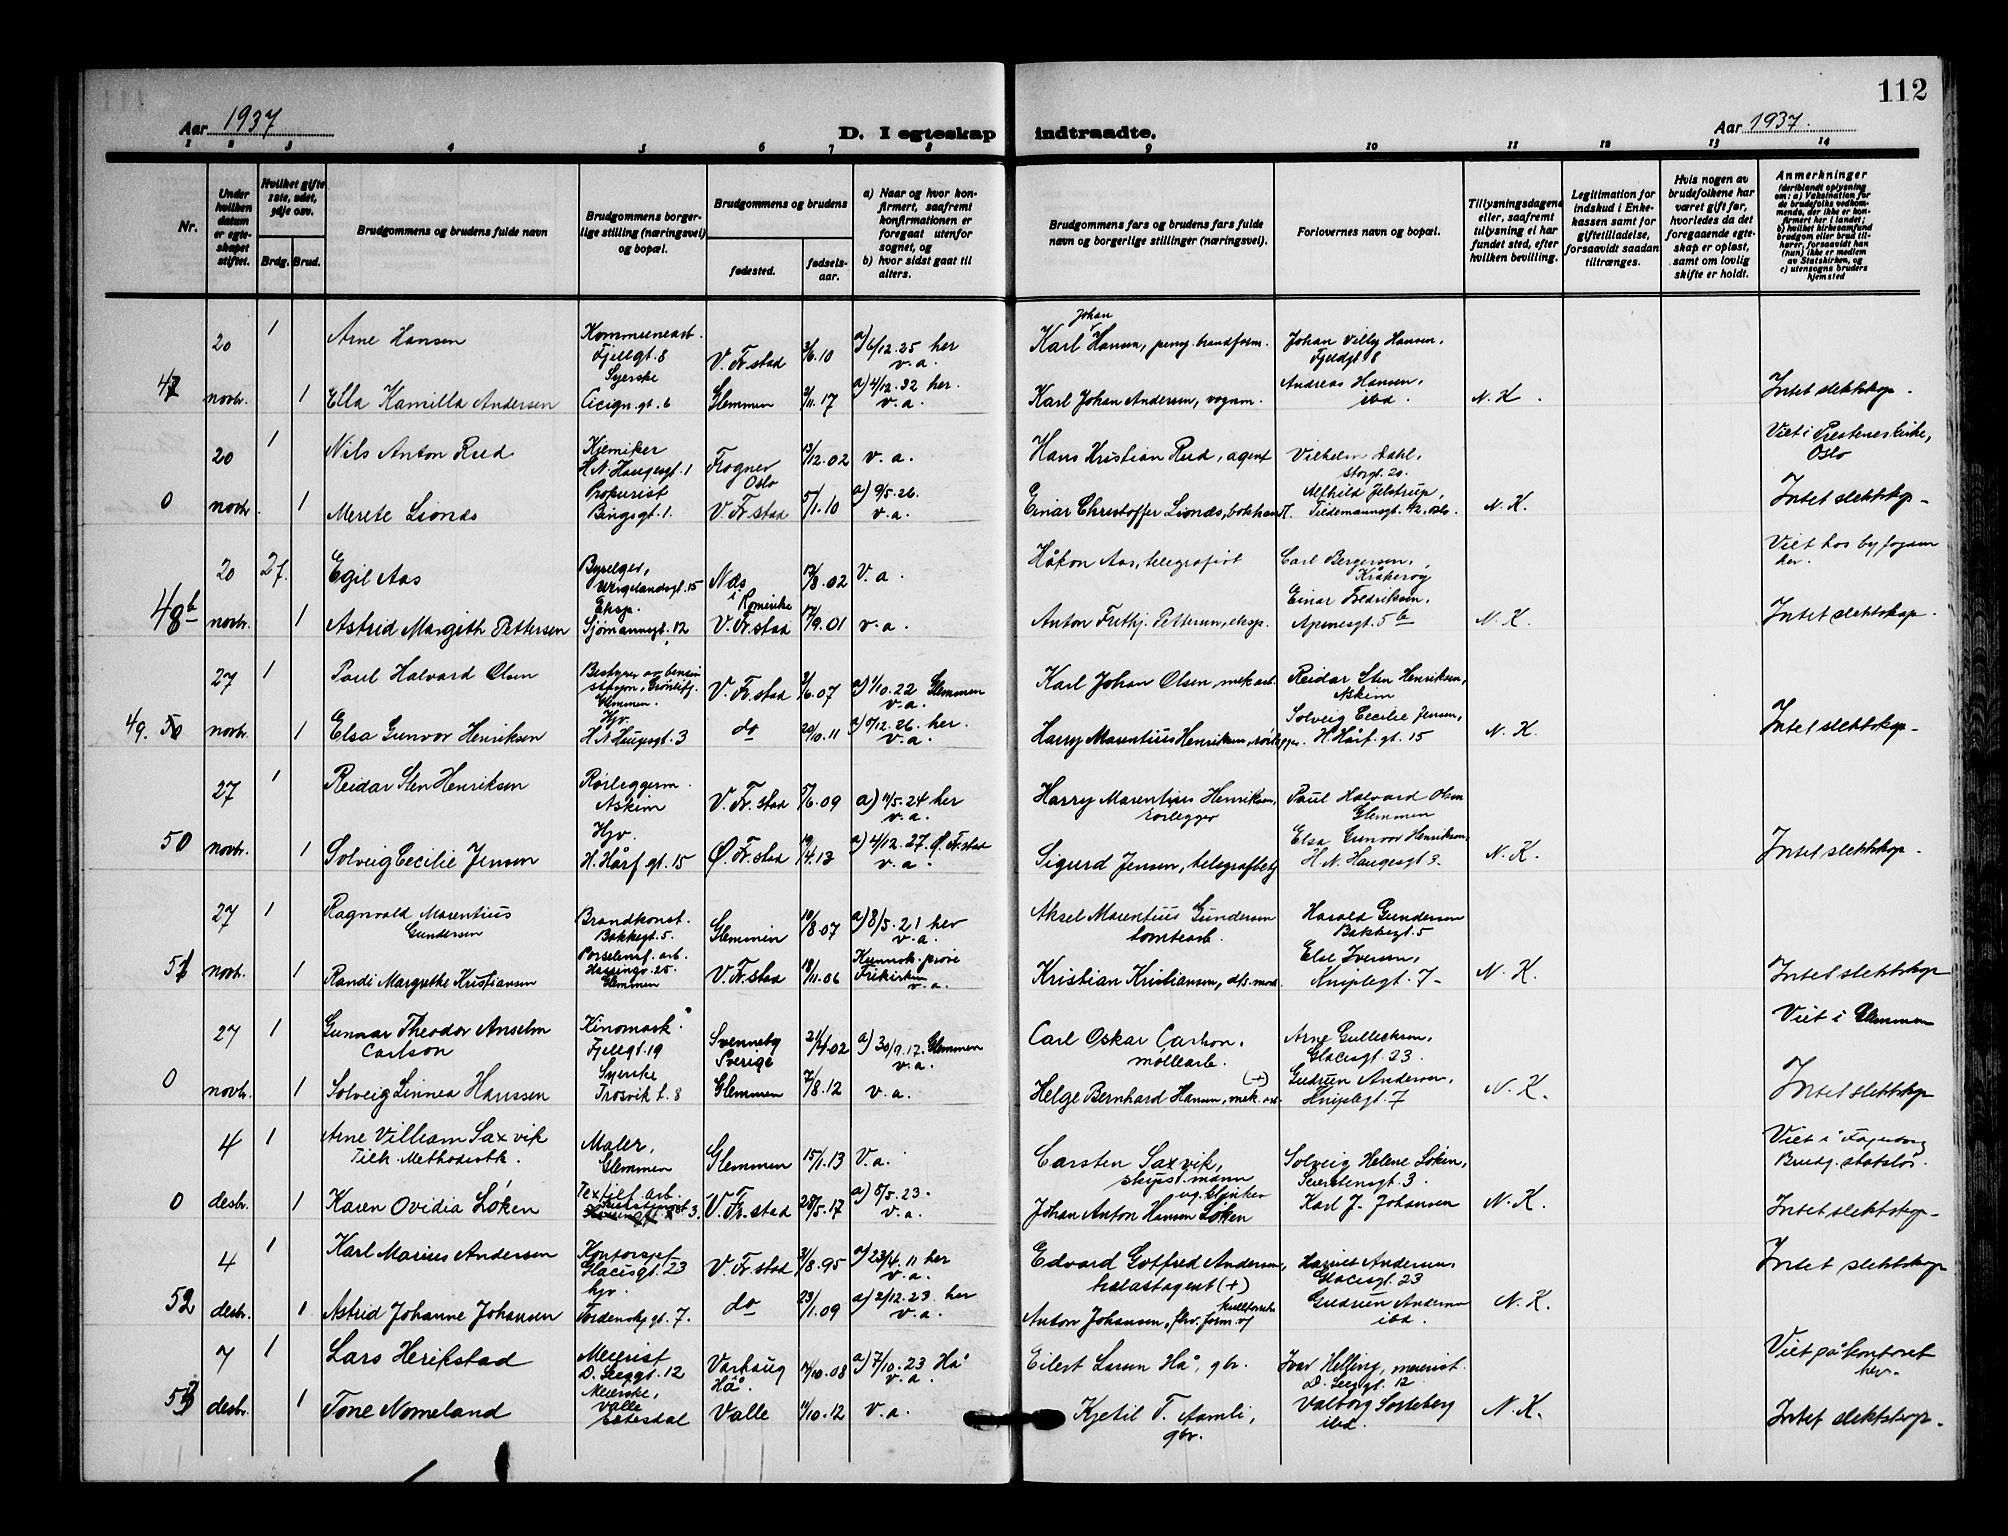 112
Aar 1937
D. I egteskap indtraadte.
Aar 1937.
1 2 3 4 5 6 7 8 9 10 11 12 13 14
Nr.
Under hvilken datum er egteskapet stiftet.
Hvilket gifte 1ste, 2det, 3dje osv.
Brdg. Brud.
Brudgommens og brudens fulde navn
Brudgommens borgerlige stilling (næringsvei) og bopæl.
Brudgommens og brudens
fødested.
fødselsaar.
a) Naar og hvor konfirmert, saafremt konfirmationen er foregaat utenfor sognet, og
b) hvor sidst gaat til alters.
Brudgommens fars og brudens fars fulde navn og borgerlige stillinger (næringsvei).
Forlovernes navn og bopæl.
Tillysningsdagene eller, saafremt tillysning ei har fundet sted, efter hvilken bevilling.
Legitimation for indskud i Enkekassen samt for giftetilladelse, forsaavidt saadan tiltrænges.
Hvis nogen av brudefolkene har været gift før, hvorledes da det foregaaende egteskap er opløst, samt om lovlig skifte er holdt.
Anmerkninger
(deriblandt oplysning om: a) Vaksination for de brudefolks vedkommende, der ikke er konfirmert her i landet; b) hvilket kirkesamfund brudgom eller brud tilhører, forsaavidt han (hun) ikke er medlem av Statskirken, og c) utensogns bruders hjemsted
47
20 novbr.
1
Arne Hansen
Kommunearb. Fjeldgt. 8
V. Fr.stad
3/6.10
a) 6/12.25 her v.a.
Karl Johan Hansen, brandform.
Johan Villy Hansen, Fjeldgt 8
1
Ella Kamilla Andersen
Syerske Cicign.gt. 6
Glemmen
2/11.17
a) 4/12.32 her. v.a.
Karl Johan Andersen, vognm.
Andreas Hansen, ibd.
N.K.
Intet slektskap.
0
20 novbr.
1
Nils Anton Rud
Kjemiker H.N. Haugesgt. 1
Frogner Oslo
13/12.02
v.a.
Hans Kristian Rud, agent
Vilhelm Dahl, Storgt. 20.
Viet i Prestenes kirke, Oslo
1
Merete Lionds
Prokurist Bingsgt. 1.
V. Fr.stad
5/1.10
a) 9/5.26. v.a.
Einar Christoffer Lionds, bokhan
Alfhild Jelstrup, Tidemannsgt. 42, Oslo.
N.K.
Intet slektskap
48b
20 novbr.
2 f.
Egil Aas
Byselger, Wergelandsgt. 15
Nes i Romerike
12/8.02
V.a.
Håkon Aas, telegrafist
Carl Bergersen, Kråkerøy
Viet hos byfogden her.
1
Astrid Margith Pettersen
Eksp. Sjømannsgt. 12
V. Fr.stad
17/9.01
v.a.
Anton Frithj. Pettersen, eksp.
Einar Fredriksen, Apenesgt. 5b
N.K.
Intet slektskap.
49. 50
27 novbr.
1
Paul Halvard Olsen
Bestyrer av bensinstasjon, Glemmen.
V. Fr.stad
3/6.07
a) 1/10.22 Glemmen v.a.
Karl Johan Olsen, mek arb.
Reidar Sten Henriksen, Askim
1
Elsa Gunvor Henriksen
Hjv. H.N. Haugesgt. 3
do
20/10.11
a) 5/12.26. her. v.a.
Harry Marentius Henriksen, rørlegger.
Solveig Cecilie Jensen, H. Hårf. gt. 15
N.K.
Intet slektskap
50
27 novbr.
1
Reidar Sten Henriksen
Rørleggerm. Askim
V. Fr.stad
5/6.09
a) 11/5.24 her v.a.
Harry Marentius Henriksen, rørlegger
Paul Halvard Olsen Glemmen
1
Solveig Cecilie Jensen
Hjv. H. Hårf gt. 15
Ø. Fr.stad
19/4.13
a) 4/12.27. Ø. Fr.stad v.a.
Sigurd Jensen, telegrafbetj
Elsa Gunvor Henriksen H.N. Haugesgt 3.
N.K.
Intet slektskap.
51
27 novbr.
1
Ragnvald Marentius Gundersen
Brandkonst. Bakkegt. 5.
Glemmen
10/8.07
a) 8/5.21 her v.a.
Aksel Marentius Gundersen tomtearb.
Harald Gundersen Bakkegt. 5
1
Randi Margrethe Kristiansen
Porselensf. arb. Glemmen
V. Fr.stad
18/11.06
Frikirken v.a.
Kristian Kristiansen,
Else Iversen, Kniplegt. 7
N.K.
Intet slektskap
0
27 novbr.
1
Gunnar Theodor Anselm Carlson
Kinomask. Fjeldgt. 19
Svenneby Sverige
21/4.02
a) 30/9.17. Glemmen v.a.
Carl Oskar Carlson, møllearb.
Arne Gullecksen, Glacisgt. 23.
Viet i Glemmen
1
Solveig Linnea Hanssen
Syerske Trosvik t. 8
Glemmen
7/8.12
v.a.
Helge Bernhard Hansen, mek. arb. (+)
Gudrun Andersen, Kniplegt. 7
N.K.
Intet slektskap
0
4 desbr.
1
Arne Villiam Saxvik
Tilh. Methodistk.
Maler, Glemmen
Glemmen
15/1.13
V.a.
Carsten Saxvik,
Solveig Helene Løken, 3.
Viet i Fageborg
Brudg. statsløs.
1
Karen Ovidia Løken
Textilf. arb.
V. Fr.stad
28/5.17
a) 5/5.23. v.a.
Johan Anton Hansen Løken
Karl J. Johansen
N.K.
Intet slektskap
52
4 desbr.
1
Karl Marius Andersen
Kontorsjef Glacisgt. 23
V. Fr.stad
31/8.95
a) 23/4.11 her v.a.
Edvard Gotfred Andersen, (+)
Harriet Andersen, Glacisgt. 23
Intet slektskap
1
Astrid Johanne Johansen
hjv. Tordenskj.gt. 7.
do
23/1.09
a) 2/12.23. her v.a.
Anton Johansen,
Gudrun Andersen ibd.
N.K.
53
7 desbr.
1
Lars Herikstad
Meierist D. Seeggt. 12
Varhaug Hå.
7/10.08
a) 7/10.23 Hå v.a.
Eilert Larsen Hå, gbr.
Ivar Helling, meierist. D. Seeggt. 12
Viet på kontoret her.
1
Tone Nomeland
Meierske, Valle Setesdal
Valle
11/10.12
v.a.
Kjetil T. Aamli, gbr.
Valborg Sorteberg ibd.
N.K.
Intet slektskap.